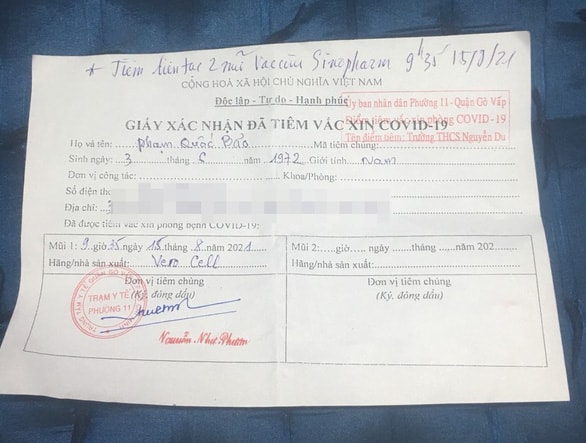 * Tiêm liên tục 2 mũi Vaccine Sinopharm 9h35 15/8/21
CỘNG HOÀ XÃ HỘI CHỦ NGHĨA VIỆT NAM
Độc lập - Tự do - Hạnh phúc
Ủy ban nhân dân Phường 11 - Quận Gò Vấp
Điểm tiêm vắc xin phòng COVID - 19
Tên điểm tiêm: Trường THCS Nguyễn Du
GIẤY XÁC NHẬN ĐÃ TIÊM VẮC XIN COVID-19
Họ và tên: Phạm Quốc Bảo Mã tiêm chủng:
Sinh ngày 3 tháng 6 năm 1972 Giới tính: Nam
Đơn vị công tác: Khoa/Phòng:
Số điện tho
Địa chỉ: 3
Đã được tiêm vắc xin phòng bệnh COVID-19:
Mũi 1: 9 giờ 35 ngày 15 tháng 8 năm 2021
Hãng/nhà sản xuất: Vero Cell
Đơn vị tiêm chủng
(Ký, đóng dấu)
TRUNG TÂM Y TẾ QUẬN GÒ VẤP
TRẠM Y TẾ
PHƯỜNG 11
Mũi 2: giờ ngày tháng năm 202
Hãng/nhà sản xuất:
Đơn vị tiêm chủng
(Ký, đóng dấu)